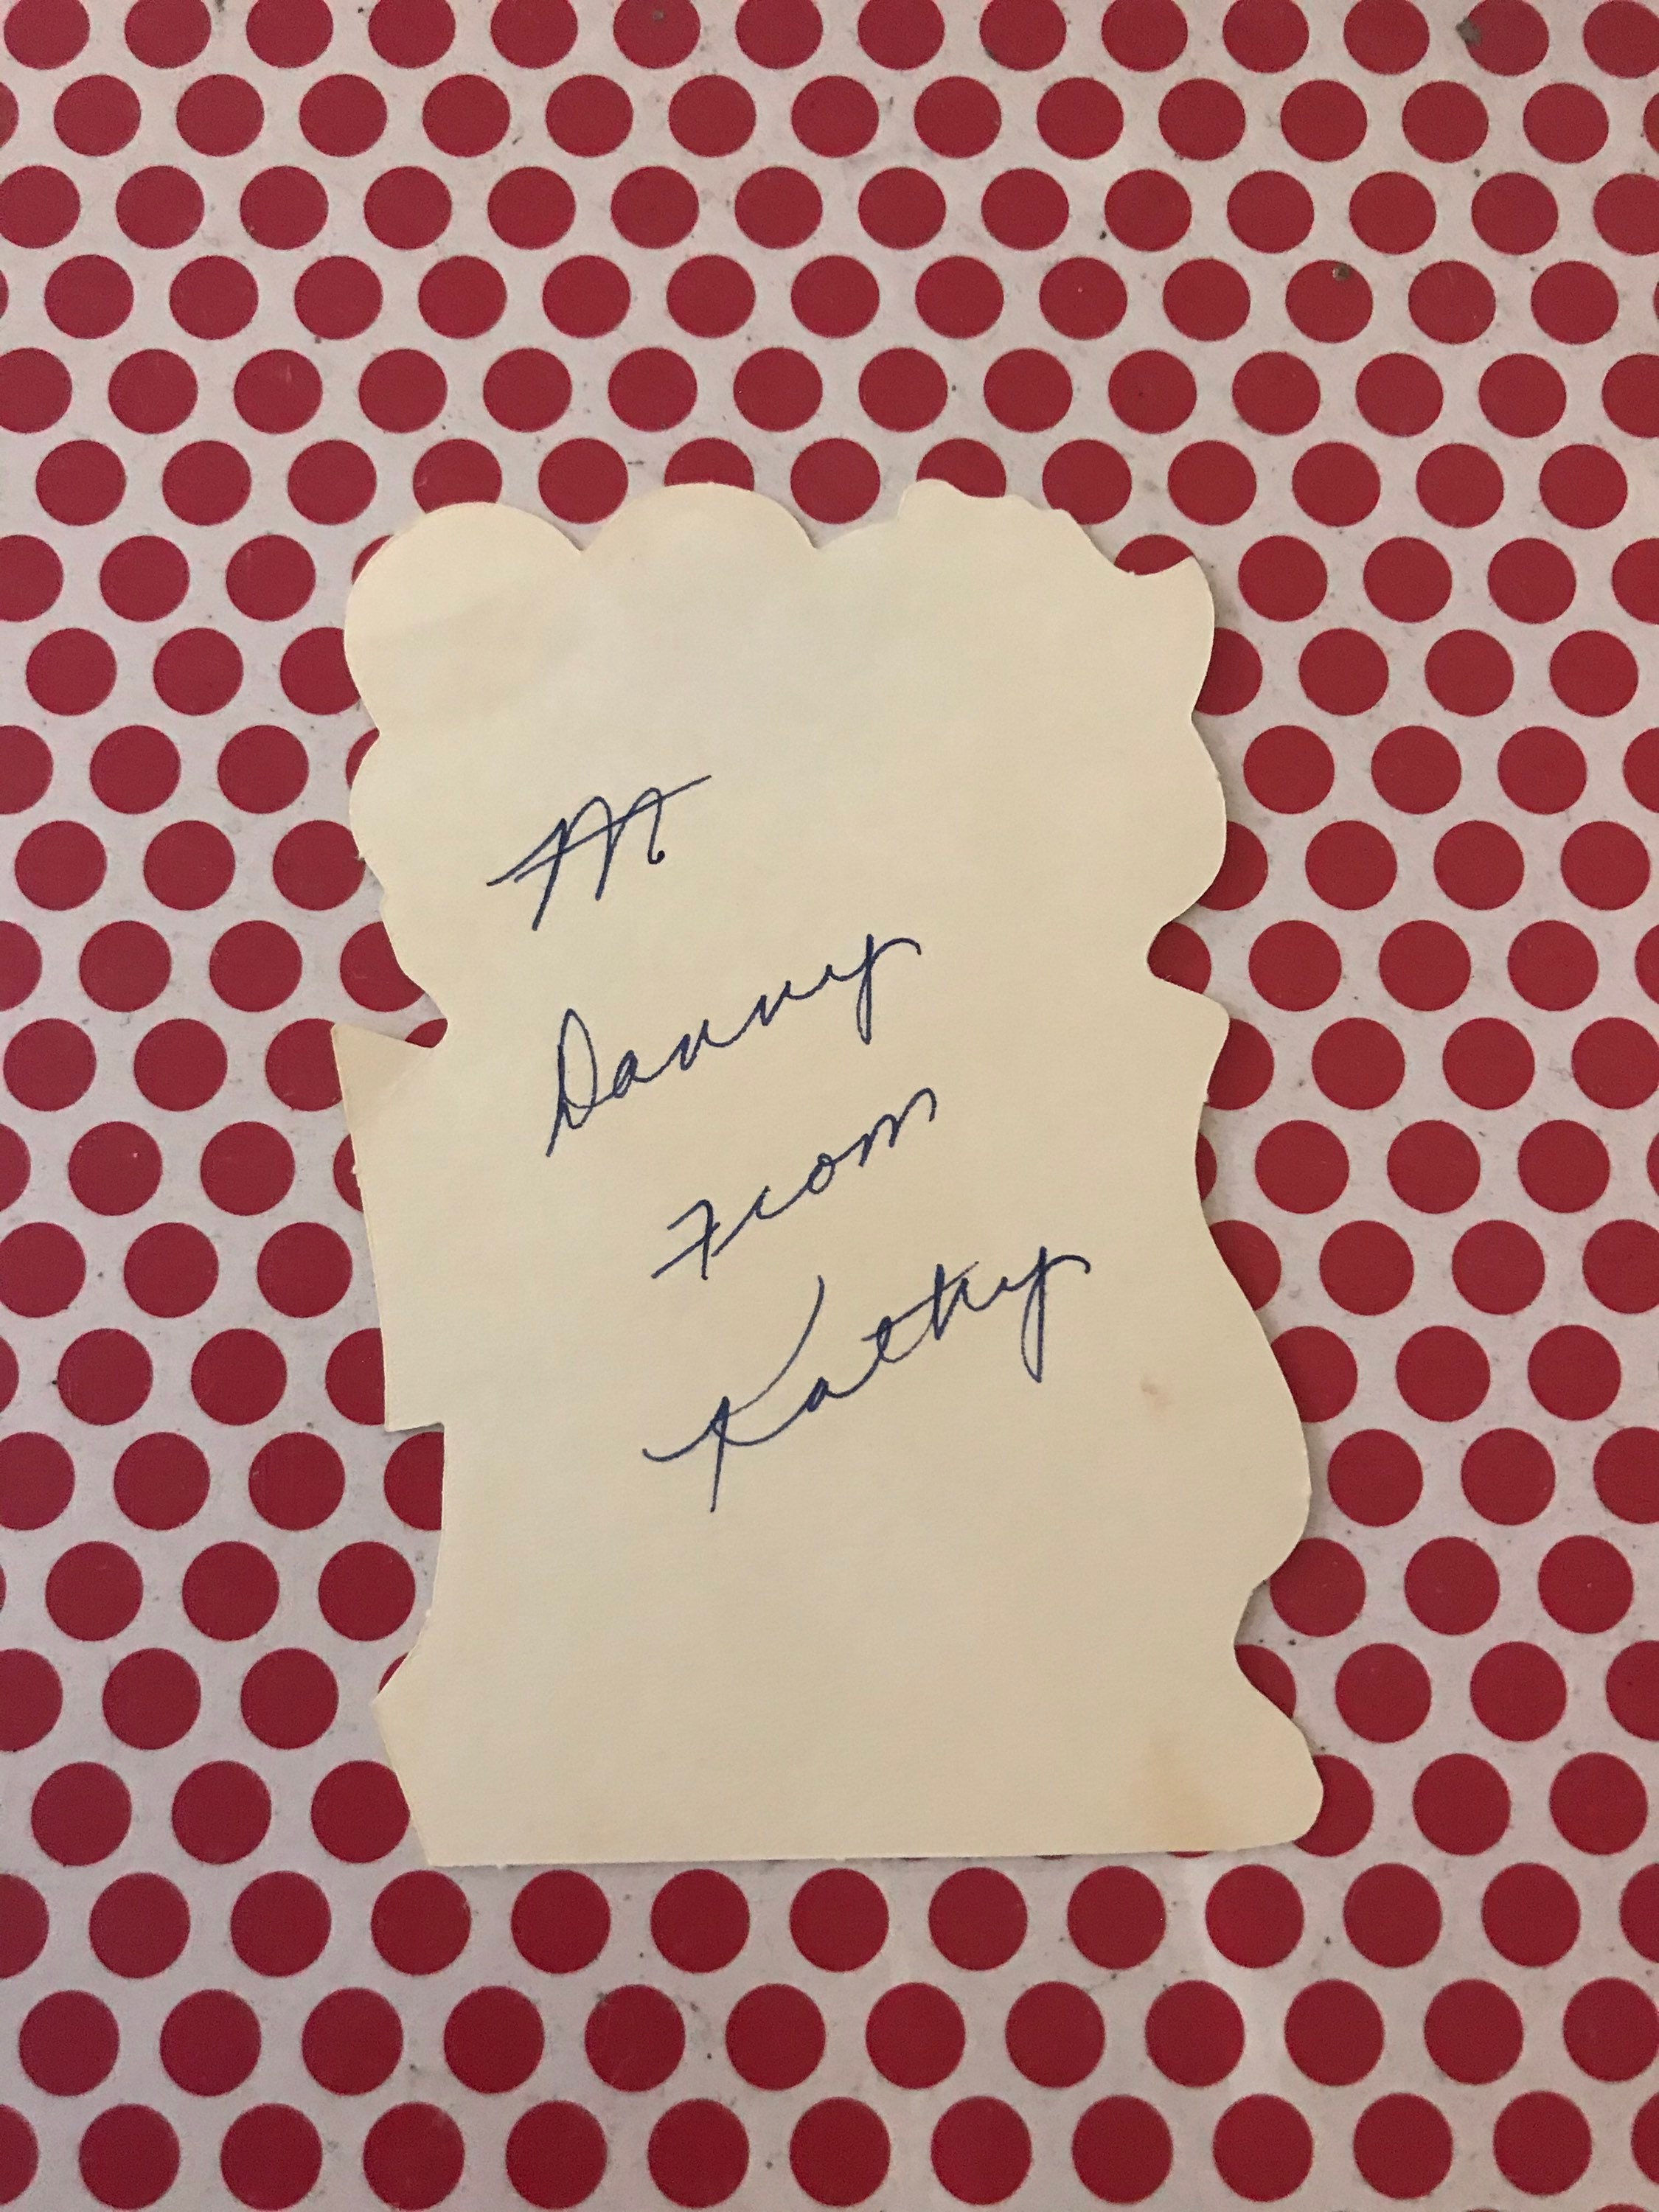 Danny
From
Kathy